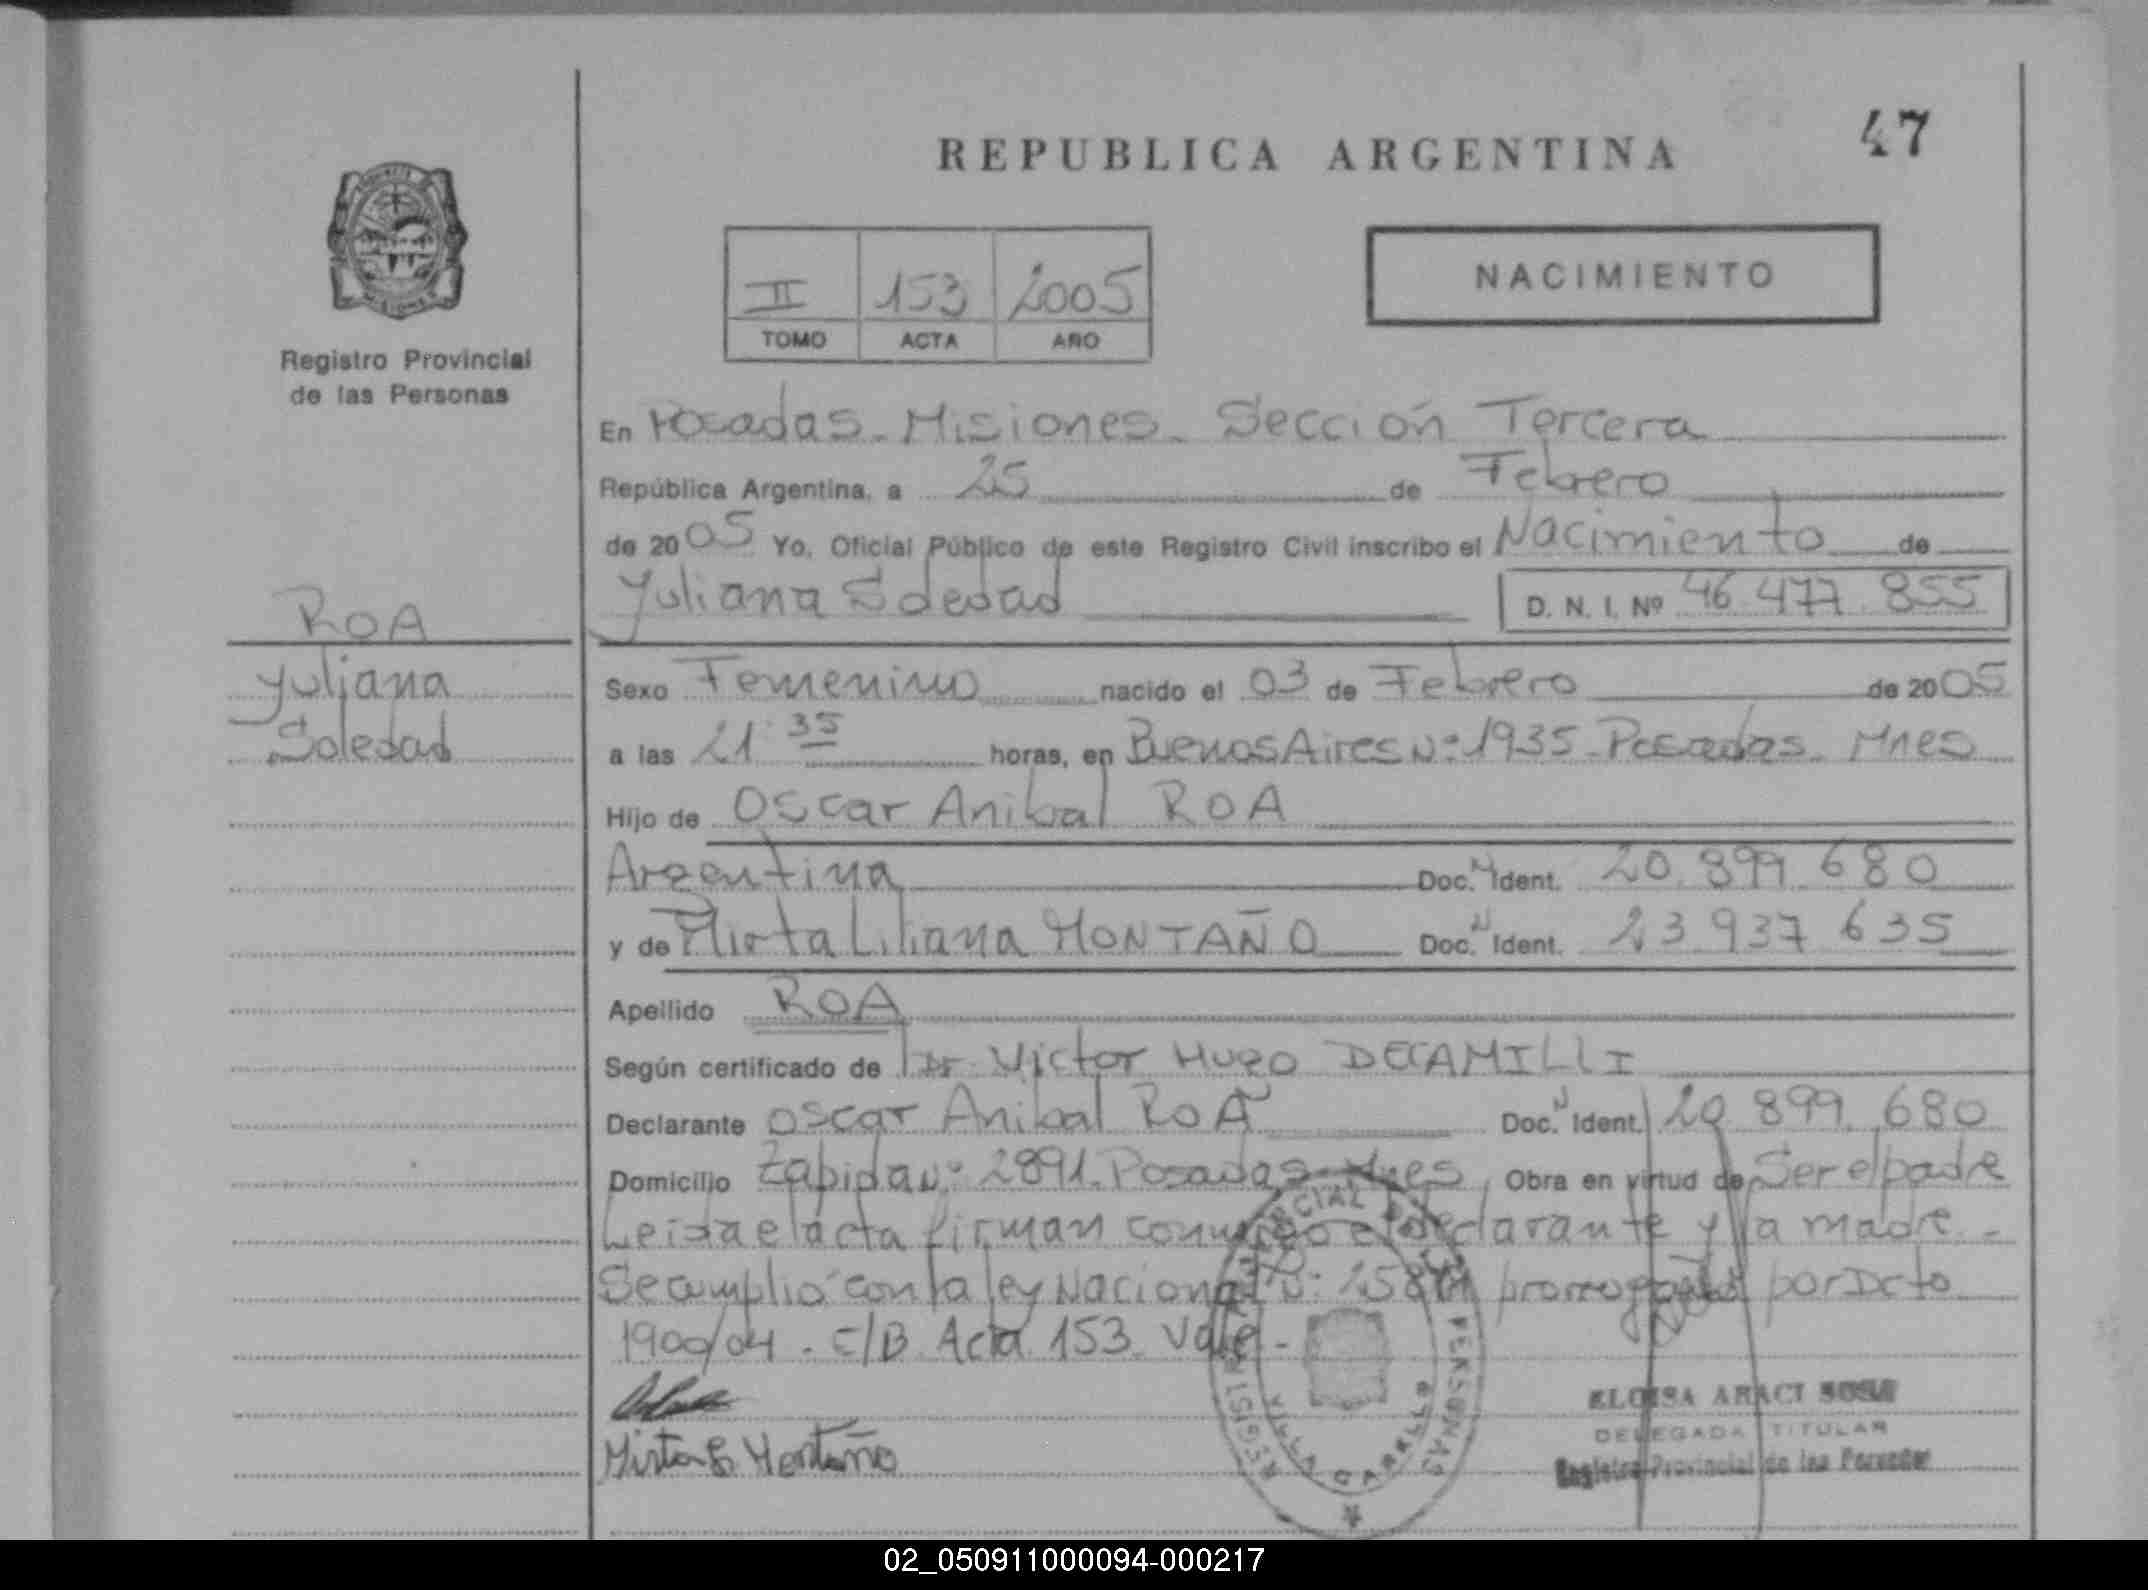 47
REPUBLICA ARGENTINA
NACIMIENTO
II 153 2005
TOMO ACTA AÑO
Registro Provincial
de las Personas
En Posadas - Misiones - Sección Tercera
República Argentina, a 25 de Febrero
de 2005 Yo, Oficial Público de este Registro Civil inscribo el Nacimiento de
Yuliana Soledad D. N. I. Nº 46.477.855
ROA
Yuliana
Soledad
Sexo Femenino nacido el 03 de Febrero de 2005
a las 21:35 horas, en Buenos Aires Nº 1935 - Posadas - Mnes
Hijo de Oscar Anibal ROA
Argentina Doc. N Ident. 20.899.680
y de Mirta Liliana MONTAÑO Doc. N Ident. 23.937.635
Apellido ROA
Según certificado de Dr. Victor Hugo DECAMILLI
Declarante Oscar Anibal ROA Doc. N Ident. 20.899.680
Domicilio Zabida Nº 2891 - Posadas - Mnes Obra en virtud de Ser el padre
Leida el acta firman conmigo el declarante y la madre -
Se cumplió con la ley Nacional Nº prorrogada por Dcto
1900/04 - E/B Acta 153 Vale -
Mirta L Montaño
REGISTRO PROVINCIAL DE LAS PERSONAS
VILLA CABELLO
ELOISA ARACI SOSA
DELEGADA TITULAR
Registro Provincial de las Personas
02_050911000094-000217